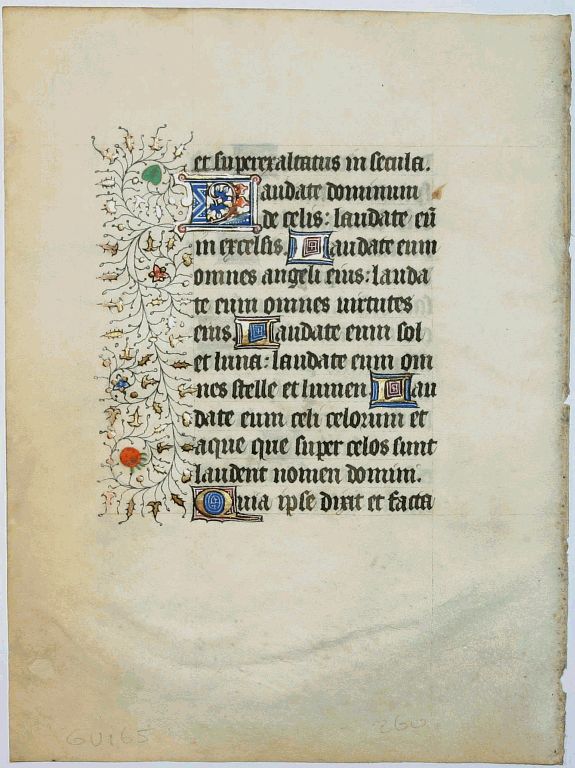 et superexaltatus in secula.
Laudate dominum
de celis: laudate eū
in excelsis. Laudate eum
omnes angeli eius: lauda
te eum omnes uirtutes
eius. Laudate eum sol
et luna: laudate eum om
nes stelle et lumen. Lau
date eum celi celorum et
aque que super celos sunt
laudent nomen domini.
Quia ipse dixit et facta
GU165
260